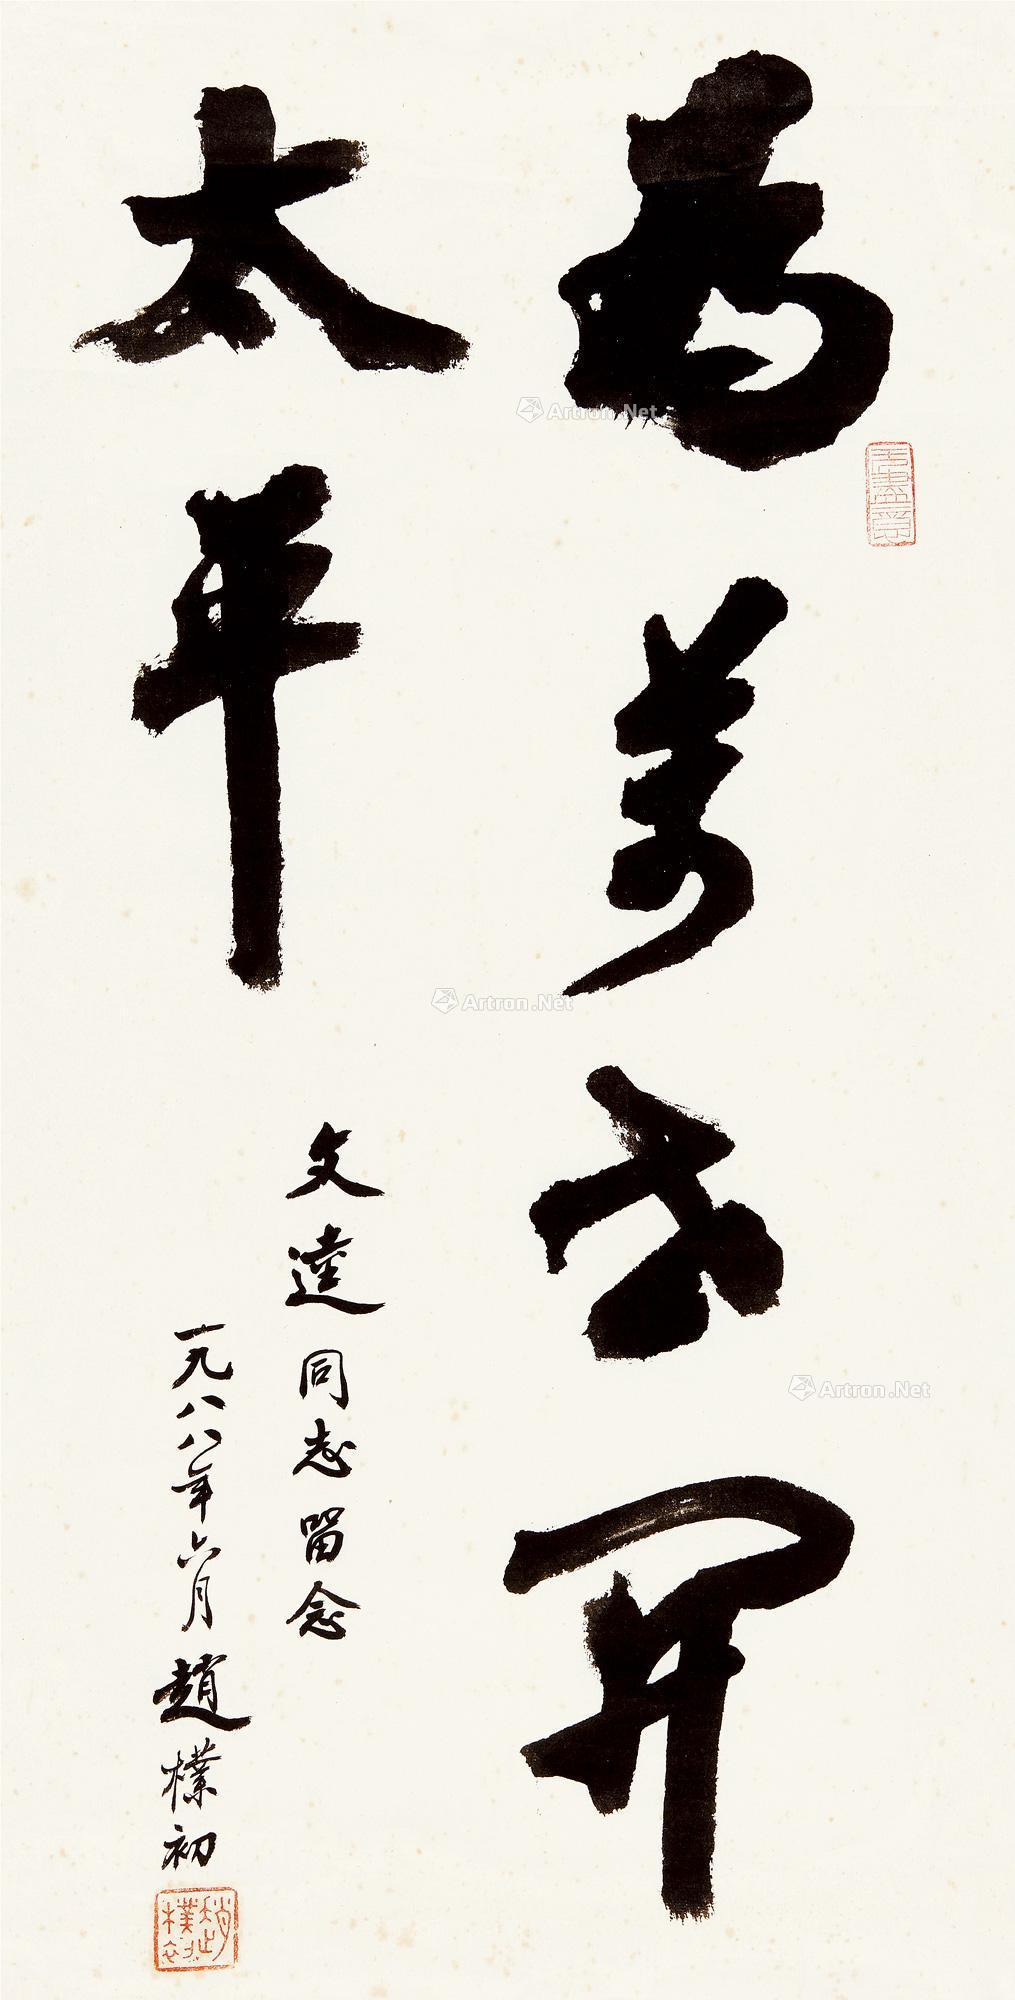 為萬世開
太平
文達同志留念
一九八八年六月趙樸初
趙樸初
Artron.Net
Artron.Net
Artron.Net